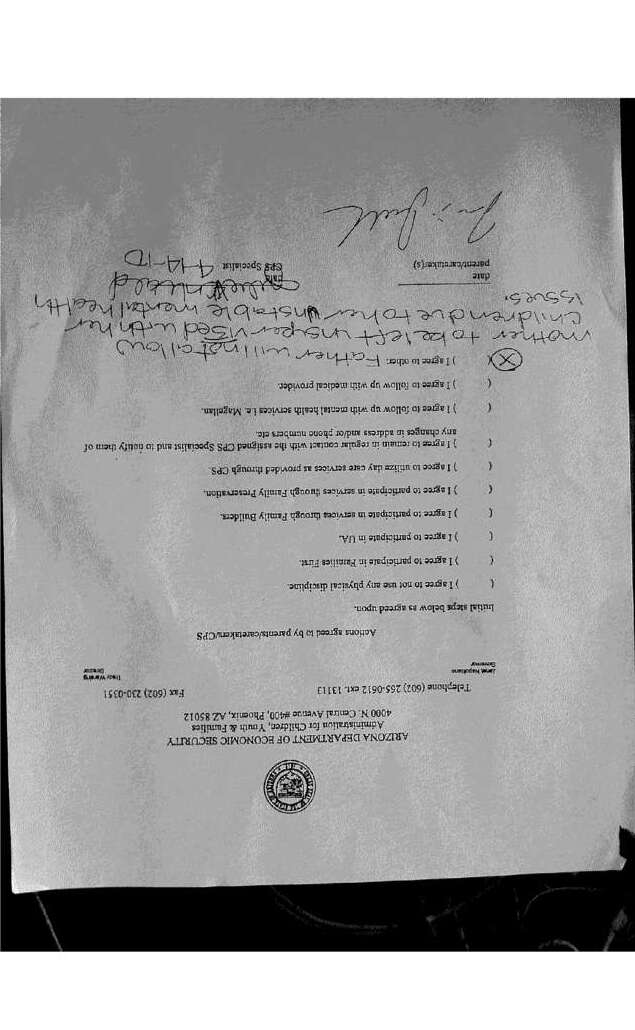 ARIZONA DEPARTMENT OF ECONOMIC SECURITY
Administration for Children, Youth & Families
4000 N. Central Avenue #400, Phoenix, AZ 85012
Telephone (602) 265-0612 ext. 13113 Fax (602) 230-0351
Janet Napolitano Tracy Wareing
Governor Director
Actions agreed to by parents/caretakers/CPS
Initial steps below as agreed upon.
( ) I agree to not use any physical discipline.
( ) I agree to participate in Families First.
( ) I agree to participate in UA.
( ) I agree to participate in services through Family Builders.
( ) I agree to participate in services through Family Preservation.
( ) I agree to utilize day care services as provided through CPS.
( ) I agree to remain in regular contact with the assigned CPS Specialist and to notify them of
any changes in address and/or phone numbers etc.
( ) I agree to follow up with mental health services i.e. Magellan.
( ) I agree to follow up with medical provider.
(X) I agree to other: Father will not allow
mother to be left unsupervised with her
children due to her unstable mental health
issues.
date date
parent/caretaker(s) CPS Specialist 4-14-10